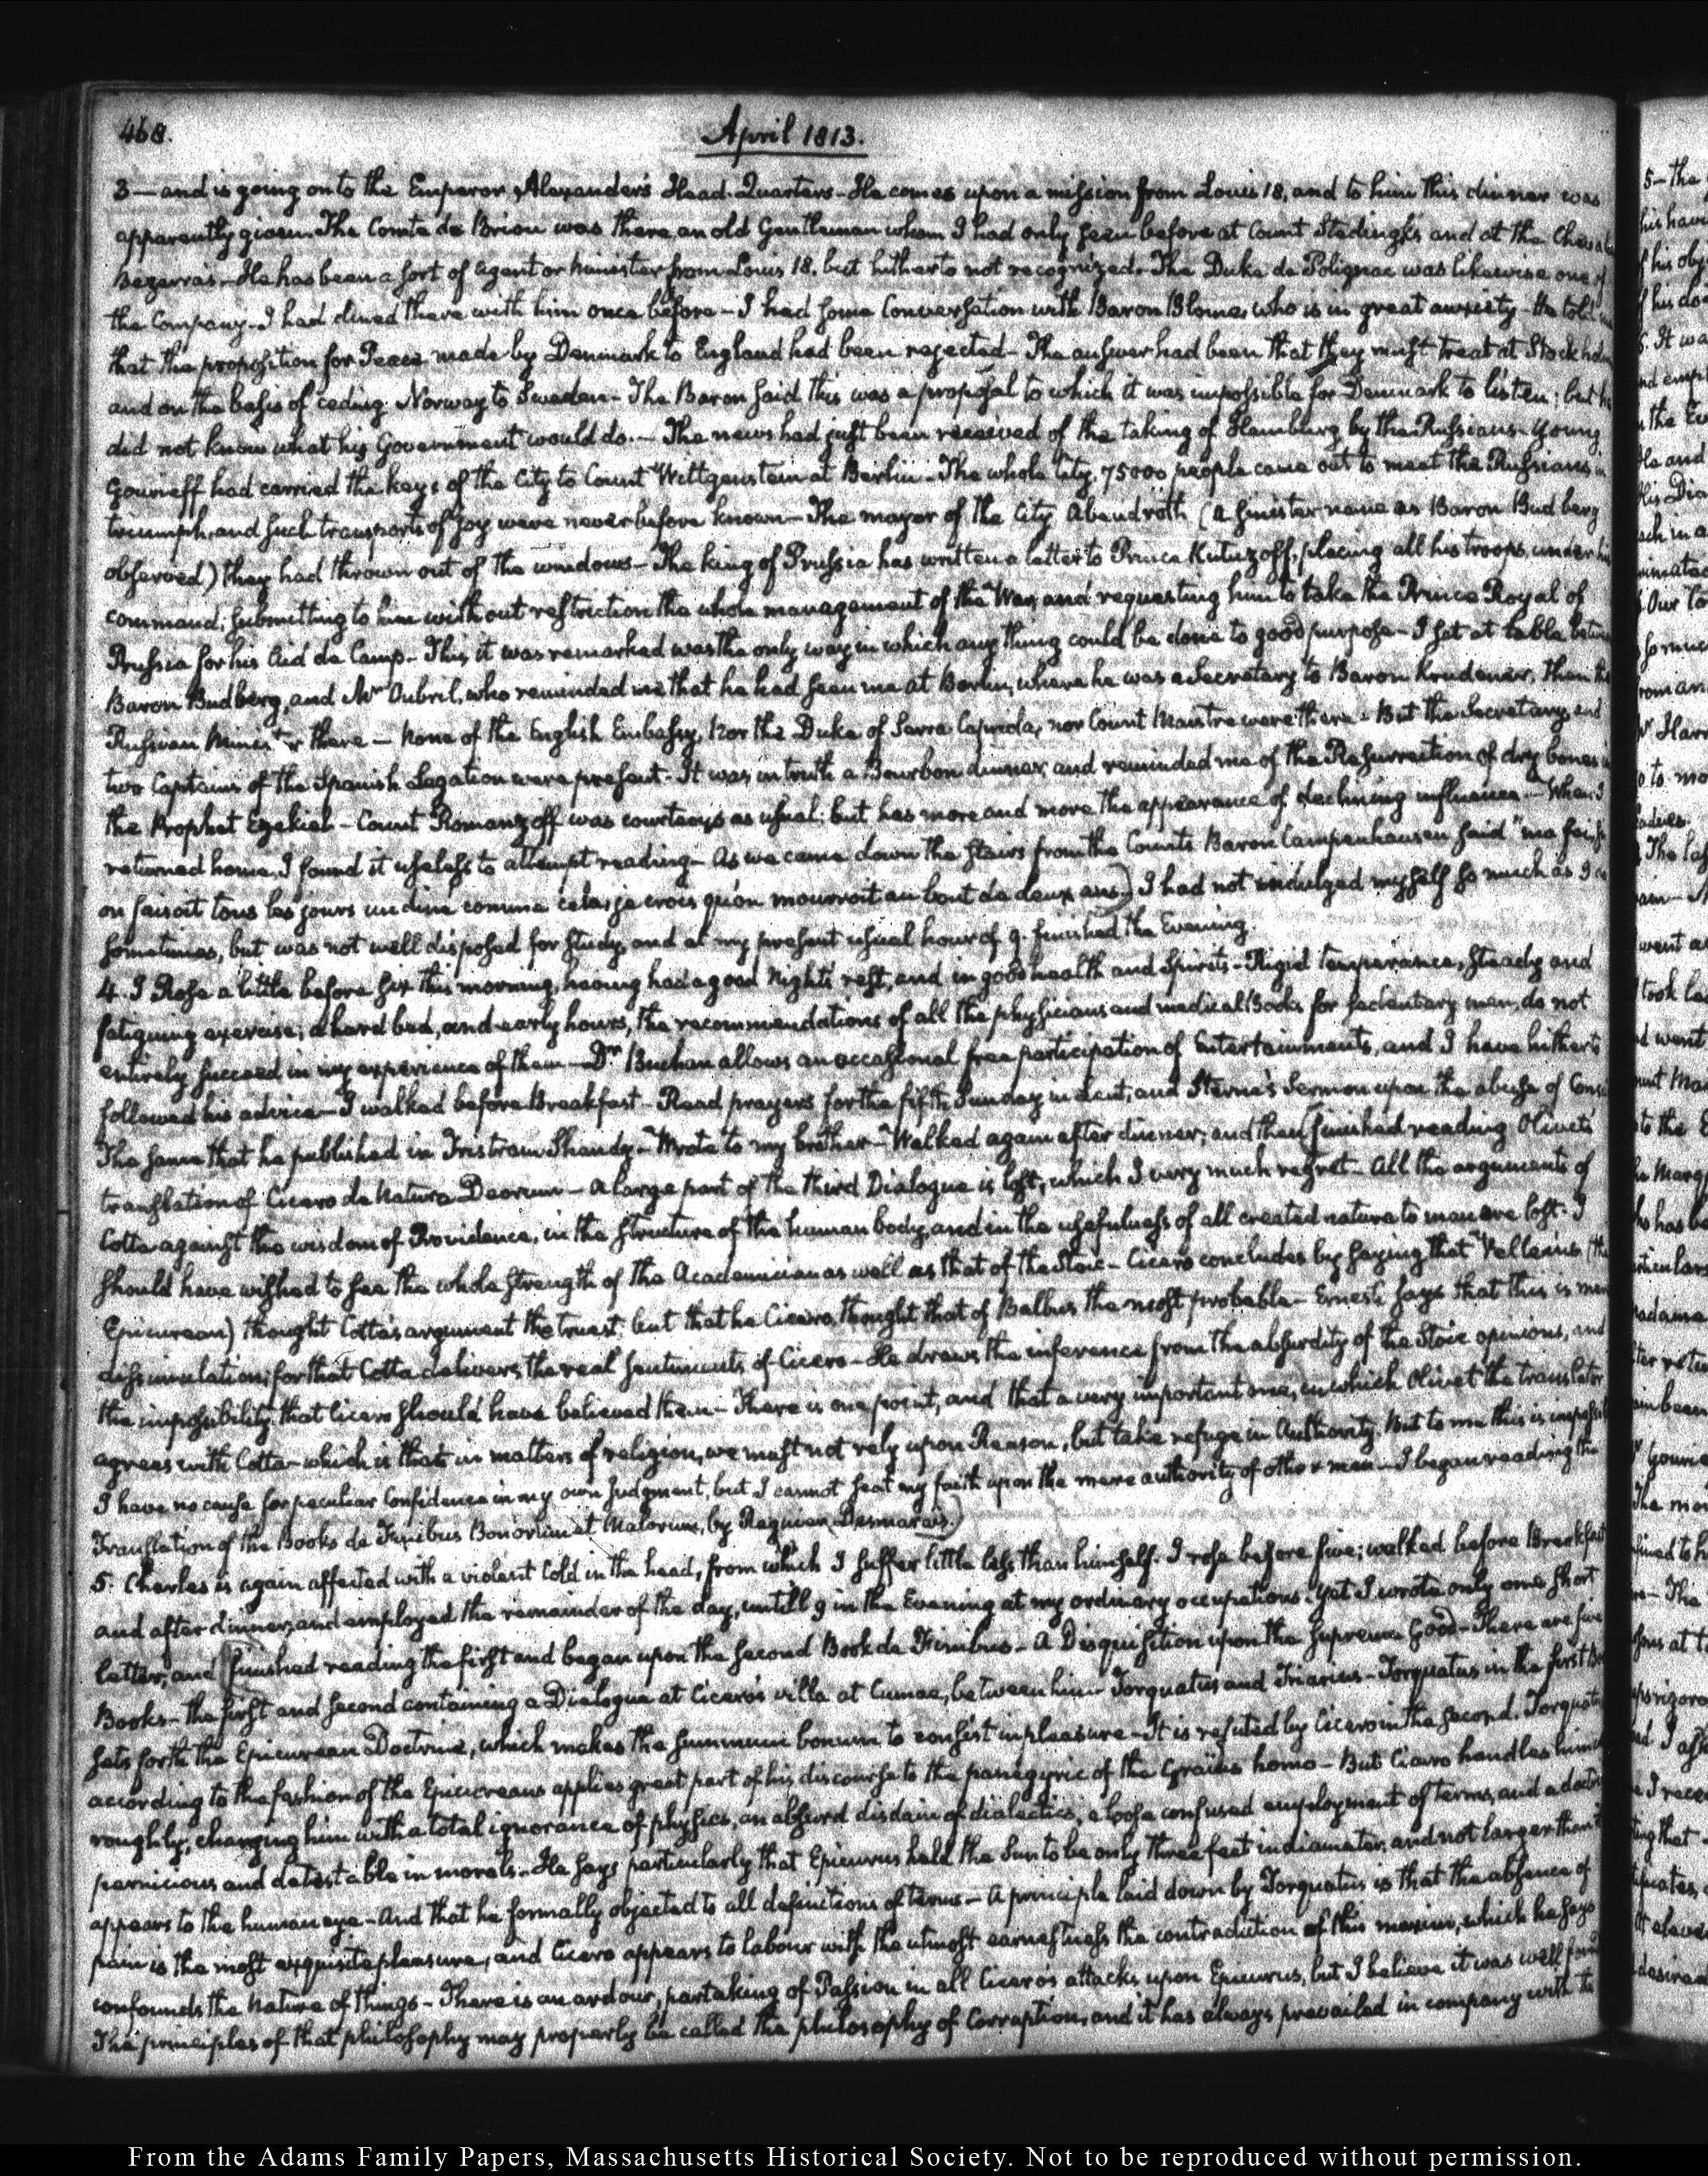 468.
April 1813.
3 — and is going on to the Emperor Alexander's Head-Quarters - He comes upon a mission from Louis 18, and to him this dinner was
apparently given. The Comte de Brion was there, an old Gentleman whom I had only seen before at Count Stedingk's and at the
Bezerra's - He has been a sort of Agent or Minister from Louis 18. but hitherto not recognized. The Duke de Polignac was likewise one of
the Company. I had dined there with him once before - I had some Conversation with Baron Blome, who is in great anxiety - He told
that the proposition for Peace made by Denmark to England had been rejected - The answer had been that they must treat at Stockholm
and on the basis of ceding Norway to Sweden - The Baron said this was a proposal to which it was impossible for Denmark to listen; but he
did not know what his Government would do. - The news had just been received of the taking of Hamburg by the Russians - young
Gourieff had carried the keys of the City to Count Wittgenstein at Berlin - The whole City, 75000 people came out to meet the Russians in
triumph, and such transports of joy were never before known - The mayor of the City Abendroth (a sinister name as Baron Budberg
observed) they had thrown out of the windows - The king of Prussia has written a letter to Prince Kutuzoff, placing all his troops under his
command, submitting to him without restriction the whole management of the War, and requesting him to take the Prince Royal of
Prussia for his Aid de Camp - This it was remarked was the only way in which any thing could be done to good purpose - I sat at table between
Baron Budberg, and Mr Oubril, who reminded me that he had seen me at Berlin, where he was a Secretary to Baron Krudener, then the
Russian Minister there - None of the English Embassy, nor the Duke of Serra Capriola, nor Count Maistre were there - But the Secretary and
two Captains of the Spanish Legation were present - It was in truth a Bourbon dinner, and reminded me of the Resurrection of dry bones in
the Prophet Ezekiel - Count Romanzoff was courteous as usual; but has more and more the appearance of declining influence - When I
returned home, I found it useless to attempt reading - As we came down the stairs from the Counts Baron Campenhausen said "ma foi, si
on faisoit tous les jours un diné comme celà, je crois qu'on mourroit au bout de deux ans." I had not indulged myself so much as I do
sometimes, but was not well disposed for study, and at my present usual hour of 9. finished the Evening.
4. I Rose a little before six this morning, having had a good Night's rest, and in good health and Spirits - Rigid temperance, steady and
fatiguing exercise; a hard bed, and early hours, the recommendations of all the physicians and medical Books for sedentary men, do not
entirely succeed in my experience of them - Dr Buchan allows an occasional free participation of Entertainments, and I have hitherto
followed his advice - I walked before Breakfast - Read prayers for the fifth Sunday in Lent; and Sterne's Sermon upon the abuse of
The same that he published in Tristram Shandy - Wrote to my brother - Walked again after dinner; and then finished reading Olivet's
translation of Cicero de Natura Deorum - a large part of the third Dialogue is lost, which I very much regret - All the arguments of
Cotta against the wisdom of Providence, in the structure of the human body, and in the usefulness of all created nature to man are lost. I
should have wished to see the whole strength of the Academician as well as that of the Stoic - Cicero concludes by saying that Velleius (the
Epicurean) thought Cotta's argument the truest, but that he Cicero, thought that of Balbus the most probable - Ernesti says that this is mere
dissimulation; for that Cotta delivers the real sentiments of Cicero - He draws the inference from the absurdity of the Stoic opinions, and
the impossibility, that Cicero should have believed them - There is one point, and that a very important one, in which Olivet the translator
agrees with Cotta - which is that in matters of religion, we must not rely upon Reason, but take refuge in Authority. But to me this is impossible
I have no cause for peculiar Confidence in my own Judgment, but I cannot seat my faith upon the mere authority of other men - I began reading the
Translation of the Books de Finibus Bonorum et Malorum, by Regnier Desmarais.
5. Charles is again affected with a violent Cold in the head, from which I suffer little less than himself. I rose before five; walked before Breakfast
and after dinner, and employed the remainder of the day, untill 9 in the Evening at my ordinary occupations. Yet I wrote only one short
letter; and finished reading the first and began upon the second Book de Finibus - A Disquisition upon the Supreme Good - There are five
Books - the first and second containing a Dialogue at Cicero's villa at Cumae, between him Torquatus and Triarius - Torquatus in the first Book
sets forth the Epicurean Doctrine, which makes the summum bonum to consist in pleasure - It is refuted by Cicero in the second. Torquatus
according to the fashion of the Epicureans applies great part of his discourse to the panegyric of the Graïus homo - But Cicero handles him
roughly, charging him with a total ignorance of physics, an absurd disdain of dialectics, a loose confused employment of terms, and a doctrine
pernicious and detestable in morals. He says particularly that Epicurus held the Sun to be only three feet in diameter, and not larger than it
appears to the human eye - And that he formally objected to all definitions of terms - A principle laid down by Torquatus is that the absence of
pain is the most exquisite pleasure, and Cicero appears to labour with the utmost earnestness the contradiction of this maxim, which he says
confounds the Nature of things - There is an ardour, partaking of Passion in all Cicero's attacks upon Epicurus, but I believe it was well
The principles of that philosophy may properly be called the philosophy of Corruption, and it has always prevailed in company with the
From the Adams Family Papers, Massachusetts Historical Society. Not to be reproduced without permission.